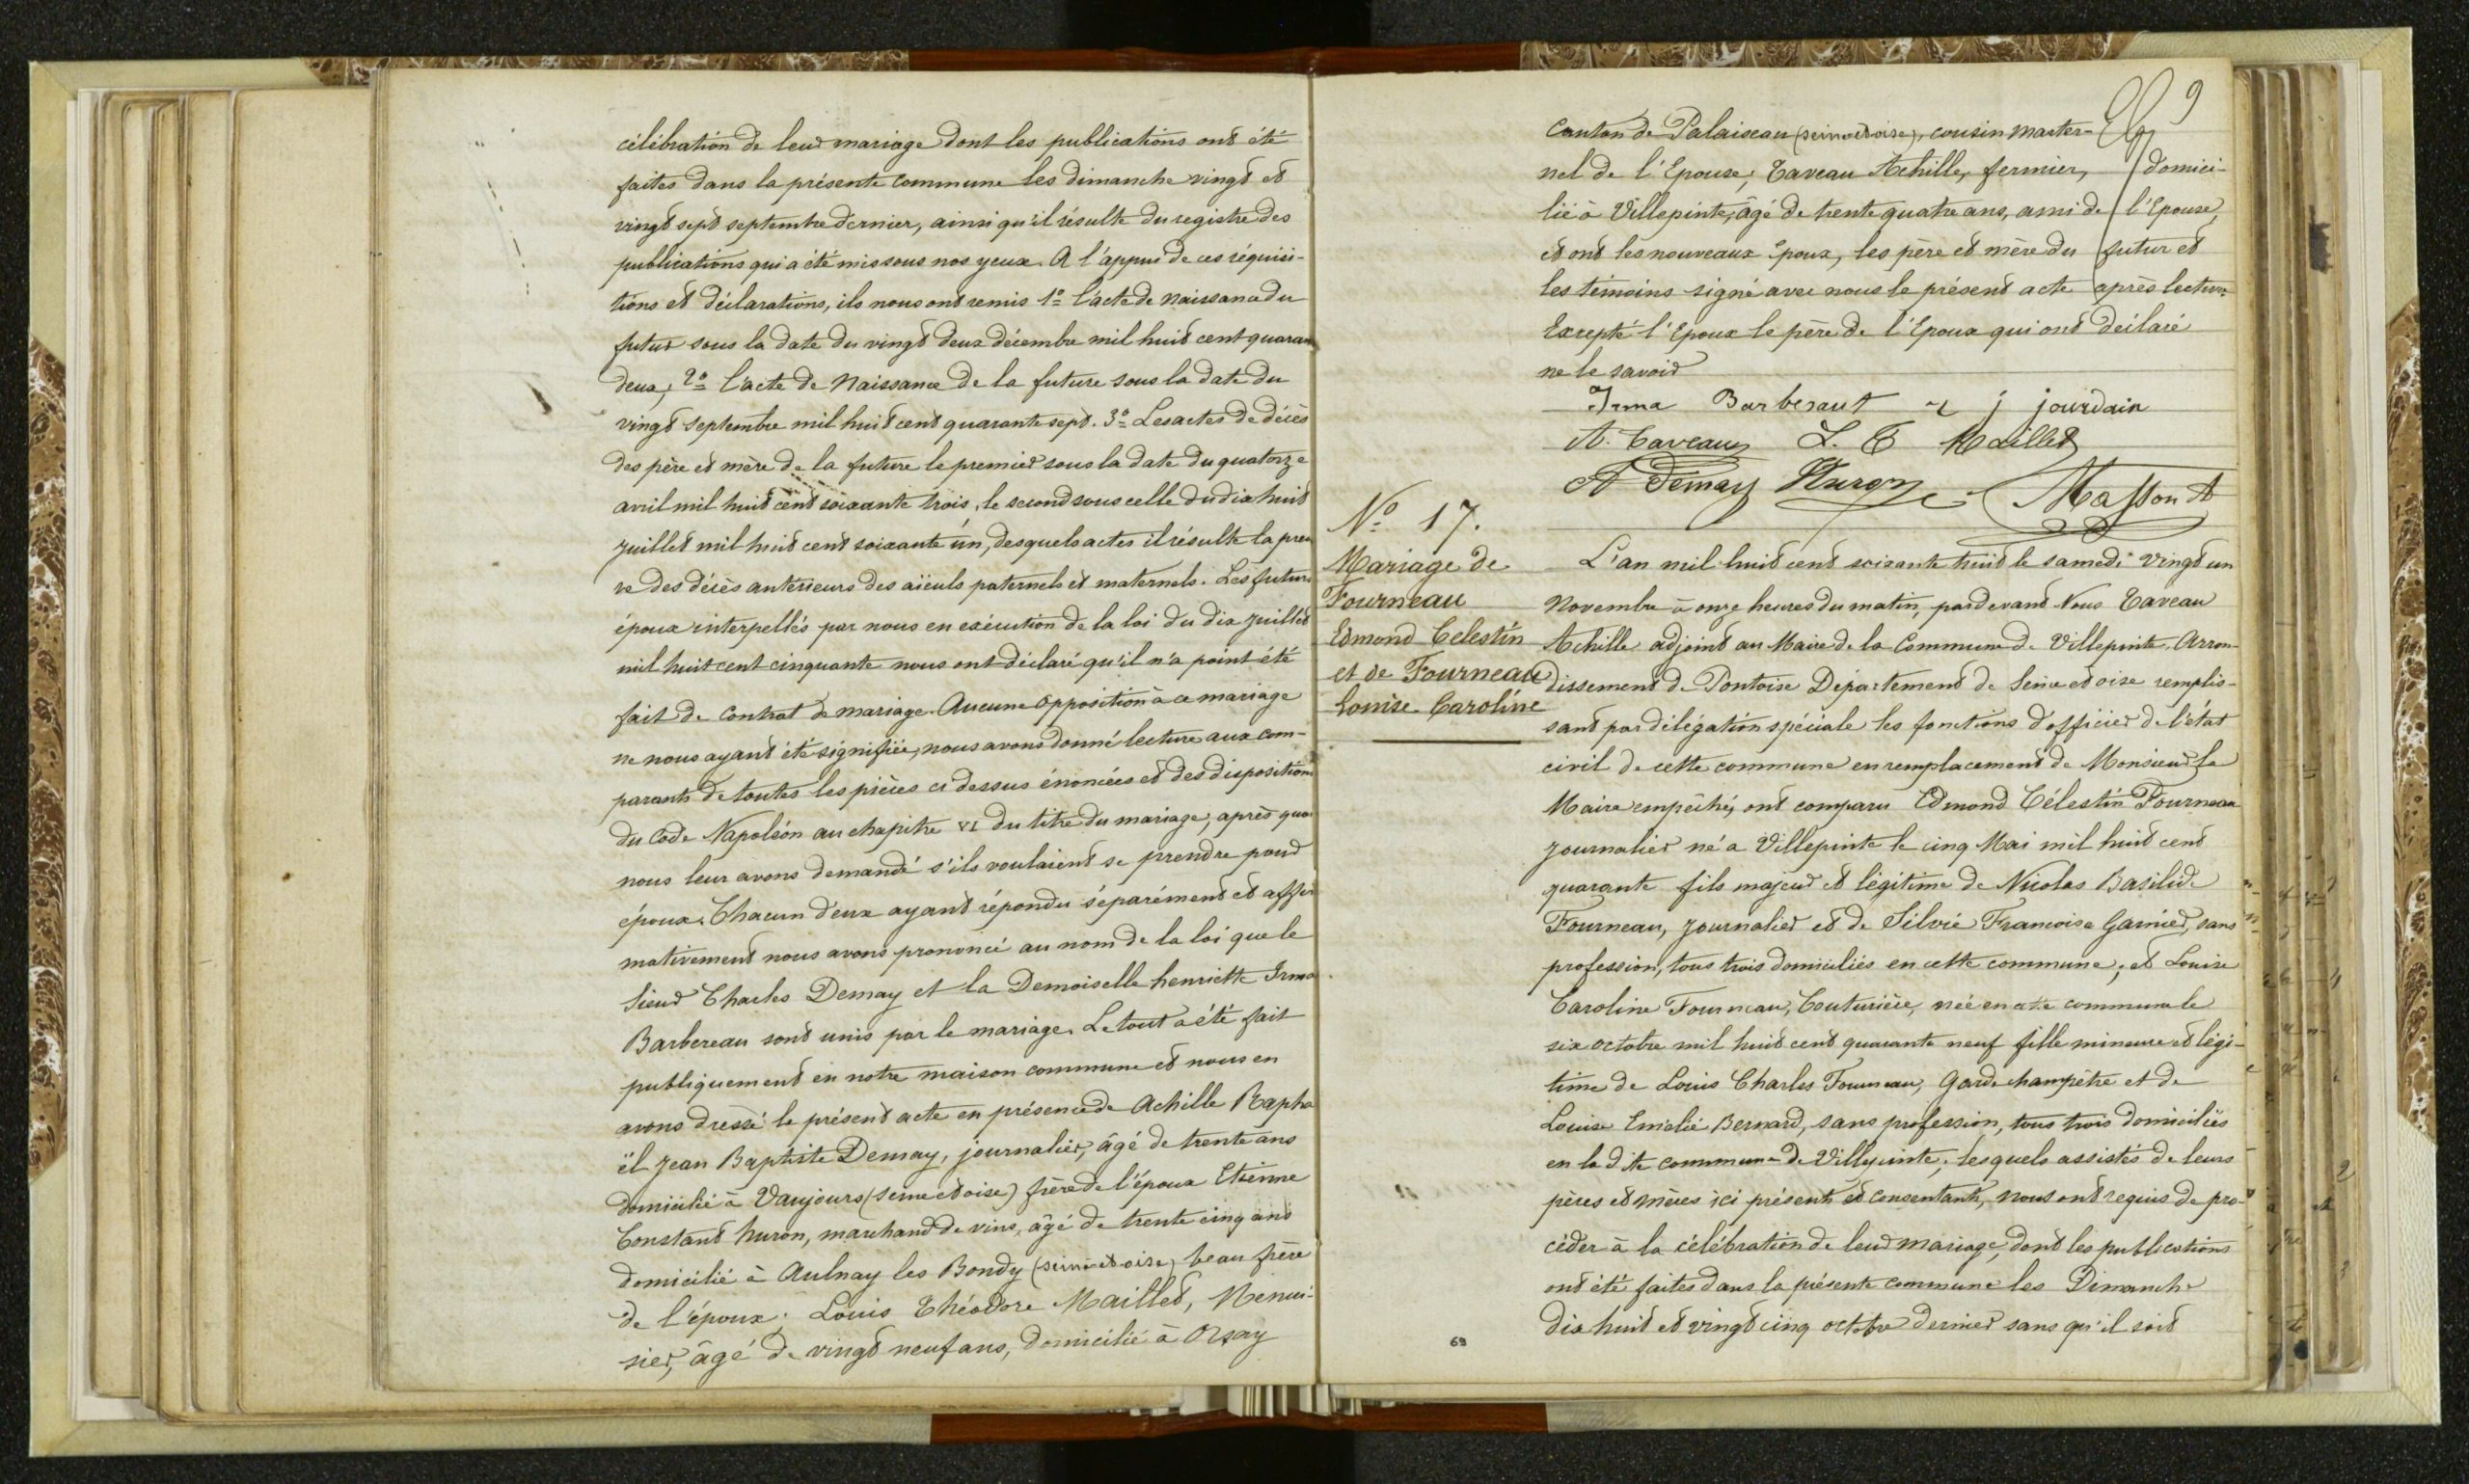 célébration de leur mariage dont les publications ont été
faites dans la présente commune les dimanche vingt et
vingt sept septembre dernier, ainsi qu'il résulte du registre des
publications qui a été mis sous nos yeux. A l'appui de ces réquisi-
tions et déclarations, ils nous ont remis 1º l'acte de naissance du
futur sous la date du vingt deux décembre mil huit cent quaran
deux, 2º l'acte de Naissance de la future sous la date du
vingt septembre mil huit cent quarante sept. 3º Les actes de décès
des père et mère de la future le premier sous la date du quatorze
avril mil huit cent soixante trois, le second sous celle du dix huit
juillet mil huit cent soixante un, desquels actes il résulte la preu
ve des décès antérieurs des aïeuls paternels et maternels. Les futurs
époux interpellés par nous en exécution de la loi du dix juillet
mil huit cent cinquante nous ont déclaré qu'il n'a point été
fait de contrat de mariage. Aucune opposition à ce mariage
ne nous ayant été signifiée, nous avons donné lecture aux com-
parants de toutes les pièces ci dessus énoncées et des dispositions
du Code Napoléon au chapitre VI du titre du mariage, après quoi
nous leur avons demandé s'ils voulaient se prendre pour
époux. Chacun d'eux ayant répondu séparément et affir
mativement nous avons prononcé au nom de la loi que le
Sieur Charles Demay et la Demoiselle henriette Irma
Barbereau sont unis par le mariage. Le tout a été fait
publiquement en notre maison commune et nous en
avons dressé le présent acte en présence de Achille Rapha
ël Jean Baptiste Demay, journalier, âgé de trente ans
domicilié à Vaujours (seine et oise) frère de l'époux Etienne
Constant huron, marchand de vins, âgé de trente cinq ans
domicilié à Aulnay les Bondy (seine et oise) beau frère
de l'époux; Louis Théodore Maillet, Menui-
sier, âgé de vingt neuf ans, domicilié à Orsay
9
Canton de Palaiseau (seine et oise), cousin mater-
nel de l'Epouse; Taveau Achille, fermier, domici-
lié à Villepinte, âgé de trente quatre ans, ami de l'Epouse,
et ont les nouveaux Epoux, les père et mère du futur et
les témoins signé avec nous le présent acte après lecture
Excepté l'Epoux le père de l'Epoux qui ont déclaré
ne le savoir
Irma Barberaut j jourdain
A. Taveau L. T Maillet
A Demay Huron Masson A
Nº 17.
Mariage de
Fourneau
Edmond Celestin
et de Fourneau
Louise Caroline
L'an mil huit cent soixante huit le samedi vingt un
Novembre à onze heures du matin, pardevant Nous Taveau
Achille adjoint au Maire de la Commune de Villepinte Arron-
dissement de Pontoise Departement de Seine et oise remplis-
sant par délégation spéciale les fonctions d'officier de l'état
civil de cette commune en remplacement de Monsieur le
Maire empêché, ont comparu Edmond Célestin Fourneau
Journalier né à Villepinte le cinq Mai mil huit cent
quarante fils majeur et légitime de Nicolas Basilide
Fourneau, Journalier et de Silvie Francoise Garnier, sans
profession, tous trois domiciliés en cette commune; et Louise
Caroline Fourneau, Couturière, née en cette commune le
six octobre mil huit cent quarante neuf fille mineure et légi-
time de Louis Charles Fourneau, Garde champêtre et de
Louise Emelie Bernard, sans profession, tous trois domiciliés
en la dite commune de Villepinte; lesquels assistés de leurs
pères et mères ici présents et consentants, nous ont requis de pro-
céder à la célébration de leur mariage, dont les publications
ont été faites dans la présente commune les Dimanche
dix huit et vingt cinq octobre dernier sans qu'il soit
69